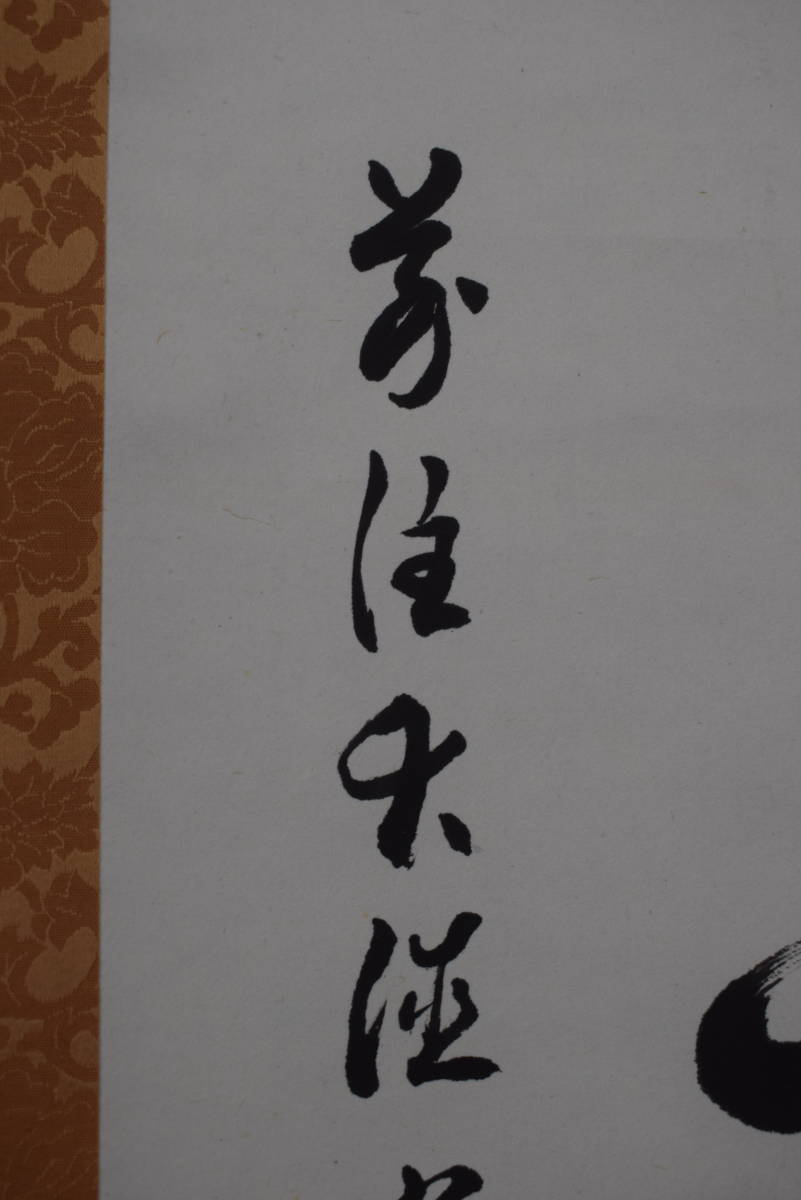 前住大徳